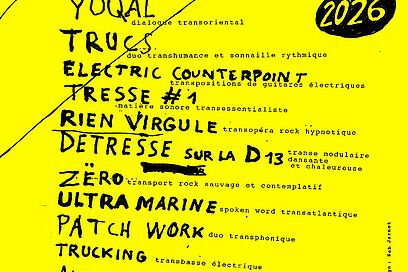 YOQAL
dialogue transoriental
2026
TRUCS
duo transhumance et sonnaille rythmique
ELECTRIC COUNTERPOINT
transpositions de guitares électriques
TRESSE #1
matière sonore transessentialiste
RIEN VIRGULE
transopéra rock hypnotique
DÉTRESSE SUR LA D13
transe modulaire
dansante
et chaleureuse
ZËRO
transport rock sauvage et contemplatif
ULTRA MARINE
spoken word transatlantique
PATCH WORK
duo transphonique
TRUCKING
transbasse électrique